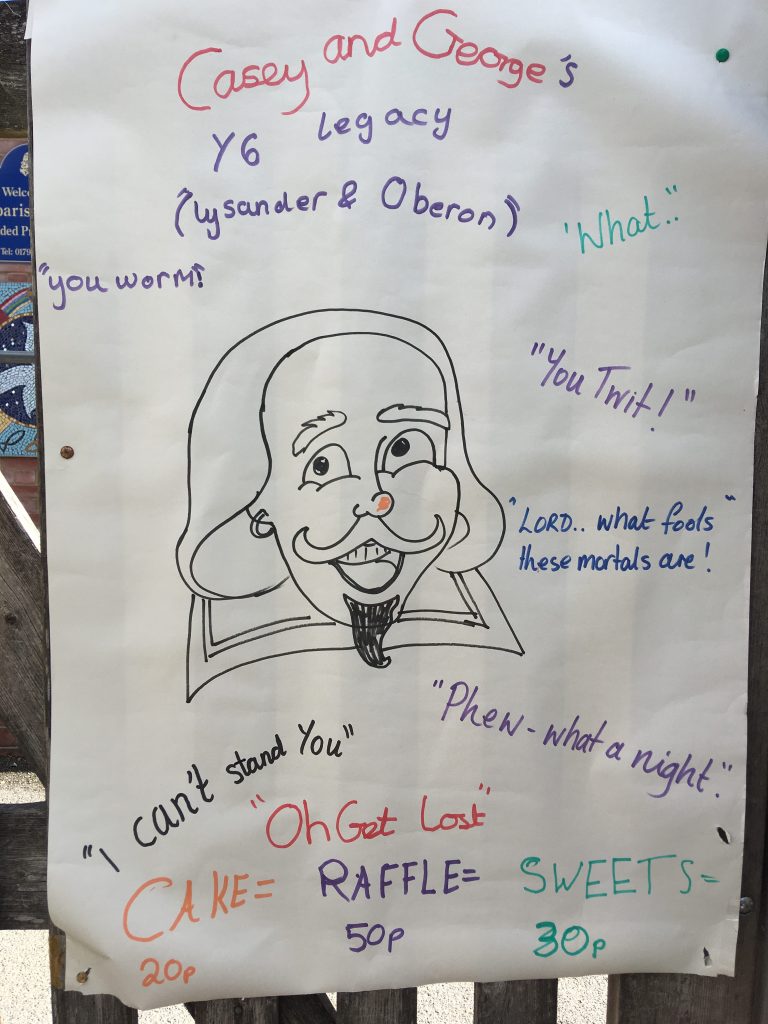 Casey and George's
Y6 legacy
(Lysander & Oberon)
'What.."
"you worm!"
"You Twit!"
"LORD.. what fools"
these mortals are!
"Phew - what a night."
"I can't stand You"
"Oh Get Lost"
CAKE= RAFFLE= SWEETS=
20p 50p 30p
Welc
paris
ded P
Tel: 0179